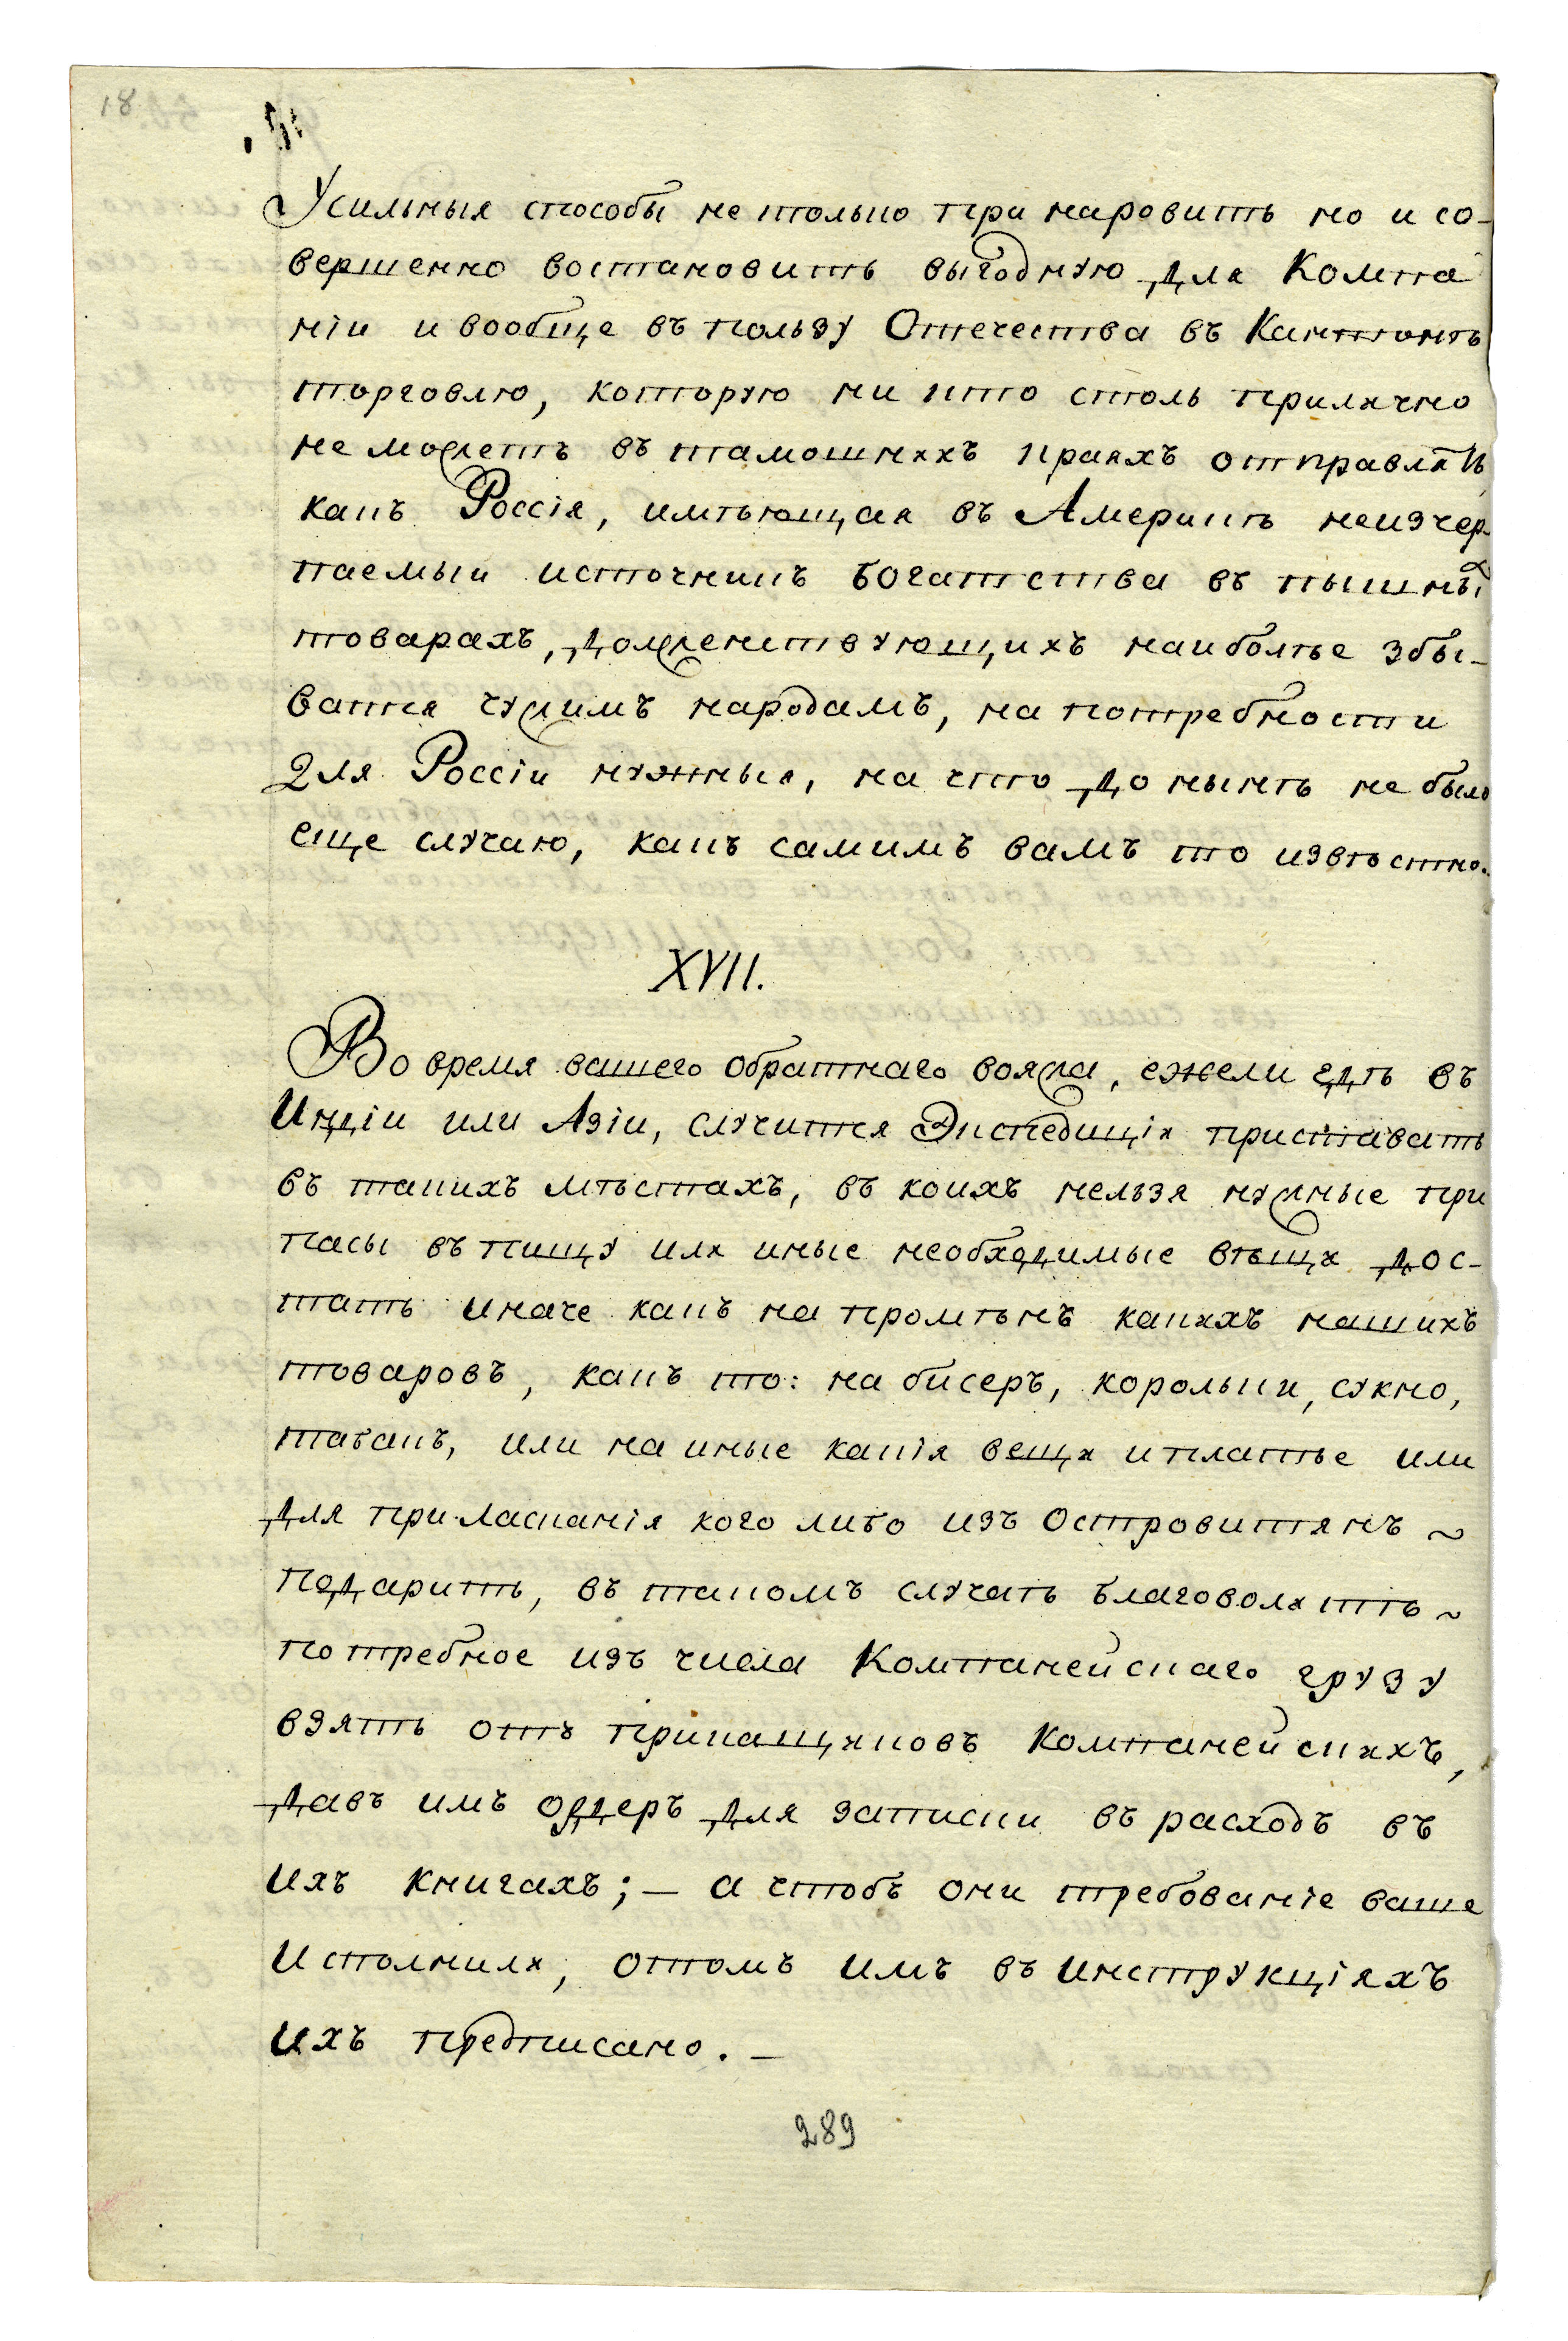 18
Усильныя способы не только при наровить но и со-
вершенно востановить выгодную для Компа
ніи и вообще въ пользу Отечества въ Кантонѣ
торговлю, которую ни кто столь прилично
не можетъ въ тамошнихъ краяхъ отправлять
какъ Россія, имѣющая въ Америкѣ неизчер-
паемыи источникъ богатства въ пышных
товарахъ, долженствующихъ наиболѣе збы-
ватся чужимъ народамъ, на потребности
для Россіи нужныя, на что до нынѣ не было
еще случаю, какъ самимъ вамъ то извѣстно.
XVII.
Во время вашего обратнаго вояжа, ежели гдѣ въ
Индіи или Азіи, случится Экспедиція приставать
въ такихъ мѣстахъ, въ коихъ нельзя нужные при
пасы въ пищу или иные необходимые вѣщи дос-
тать иначе какъ на промѣнъ какихъ нашихъ
товаровъ, какъ то: на бисеръ, корольки, сукно,
табакъ, или на иные какія вещи и платье или
для при ласканія кого либо изъ Островитянъ ~
подарить, въ такомъ случаѣ благоволитѣ ~
потребное изъ числа Компанейскаго грузу
взять отъ прикащиковъ Компанейскихъ,
давъ имъ ордеръ для записки въ расходъ въ
ихъ книгахъ; — а чтобъ они требованіе ваше
исполнили, отомъ имъ въ инструкціяхъ
ихъ предписано. —
289